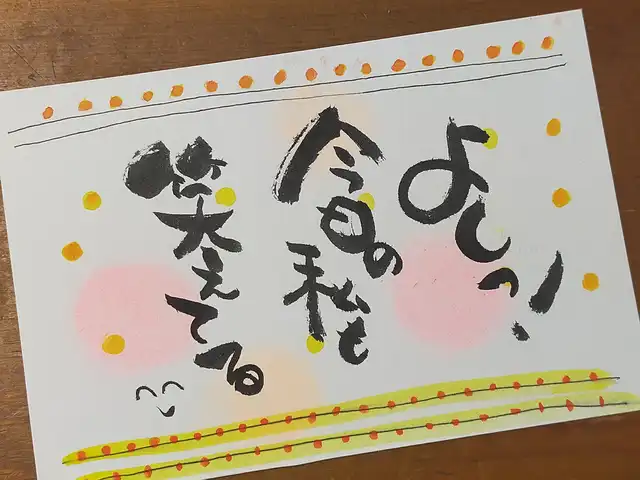 よしっ!
今日の私も
笑えてる